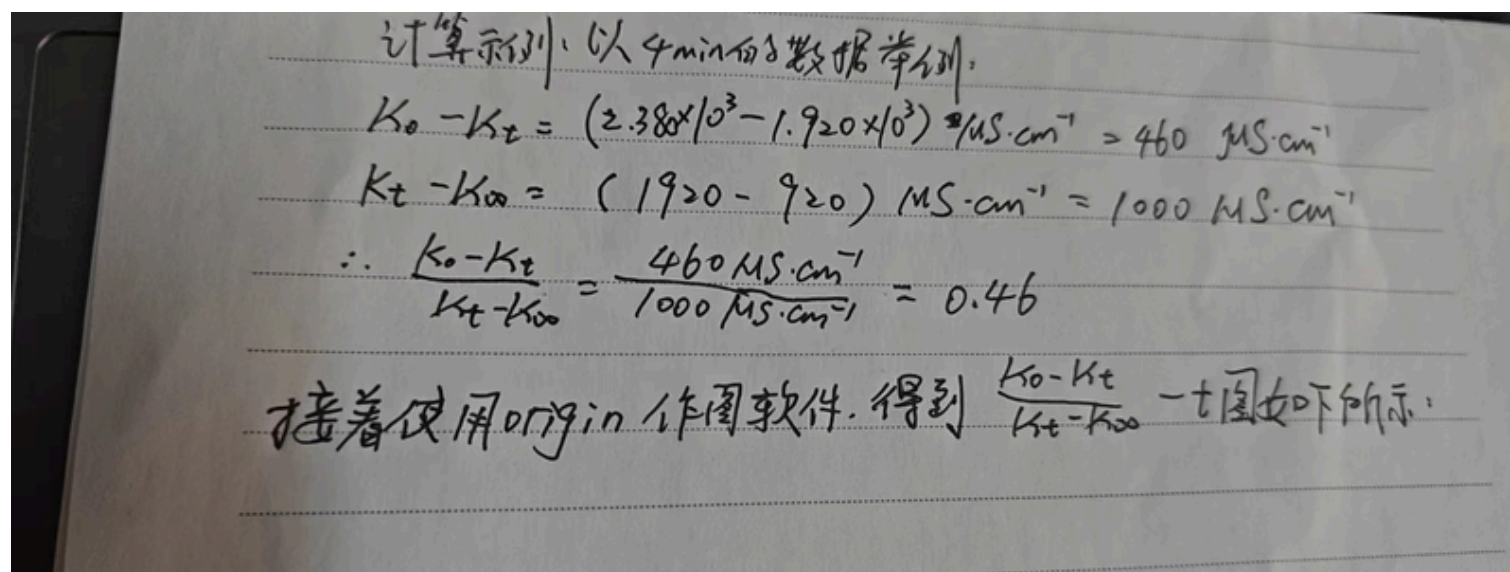 计算示例：以4min的数据举例：
K₀-Kₜ = (2.380×10³-1.920×10³) μS·cm⁻¹ = 460 μS·cm⁻¹
Kₜ-K∞ = (1920-920) μS·cm⁻¹ = 1000 μS·cm⁻¹
∴ (K₀-Kₜ)/(Kₜ-K∞) = (460 μS·cm⁻¹)/(1000 μS·cm⁻¹) = 0.46
接着使用origin作图软件.得到 (K₀-Kₜ)/(Kₜ-K∞) -t图如下所示：